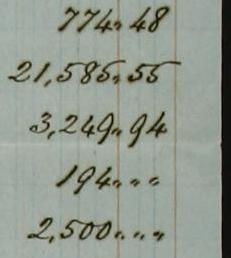 774 " 48
21,585 " 55
3,249 " 94
194 " " "
2,500 " " "